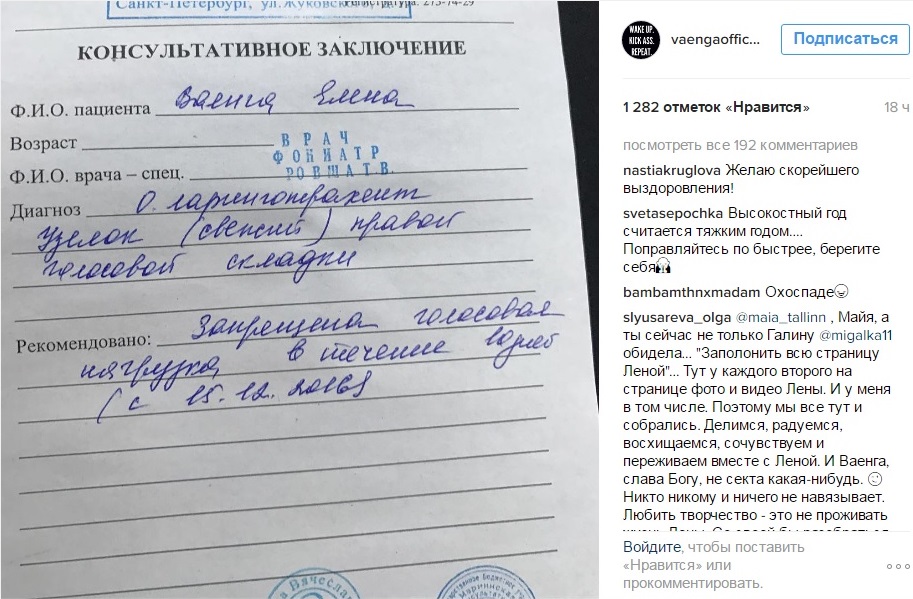 Санкт-Петербург, ул.Жуковск
Регистратура: 275-74-29
КОНСУЛЬТАТИВНОЕ ЗАКЛЮЧЕНИЕ
Ф.И.О. пациента Ваенга Елена
Возраст
ВРАЧ
ФОНИАТР
Ф.И.О. врача – спец. РОВША Т.В.
Диагноз О. ларинготрахеит
Узелок (свежий) правой
голосовой складки
Рекомендовано: Запрещена голосовая
нагрузка в течение
(с 15.12.2016)
Вячеслав
WAKE UP.
KICK ASS.
REPEAT.
vaengaoffic...
Подписаться
1 282 отметок «Нравится»
18 ч
посмотреть все 192 комментариев
nastiakruglova Желаю скорейшего
выздоровления!
svetasepochka Высокостный год
считается тяжким годом....
Поправляйтесь по быстрее, берегите
себя
bambamthnxmadam Охоспаде
slyusareva_olga @maia_tallinn , Майя, а
ты сейчас не только Галину @migalka11
обидела... "Заполонить всю страницу
Леной"... Тут у каждого второго на
странице фото и видео Лены. И у меня
в том числе. Поэтому мы все тут и
собрались. Делимся, радуемся,
восхищаемся, сочувствуем и
переживаем вместе с Леной. И Ваенга,
слава Богу, не секта какая-нибудь.
Никто никому и ничего не навязывает.
Любить творчество - это не проживать
Войдите, чтобы поставить
«Нравится» или
прокомментировать.